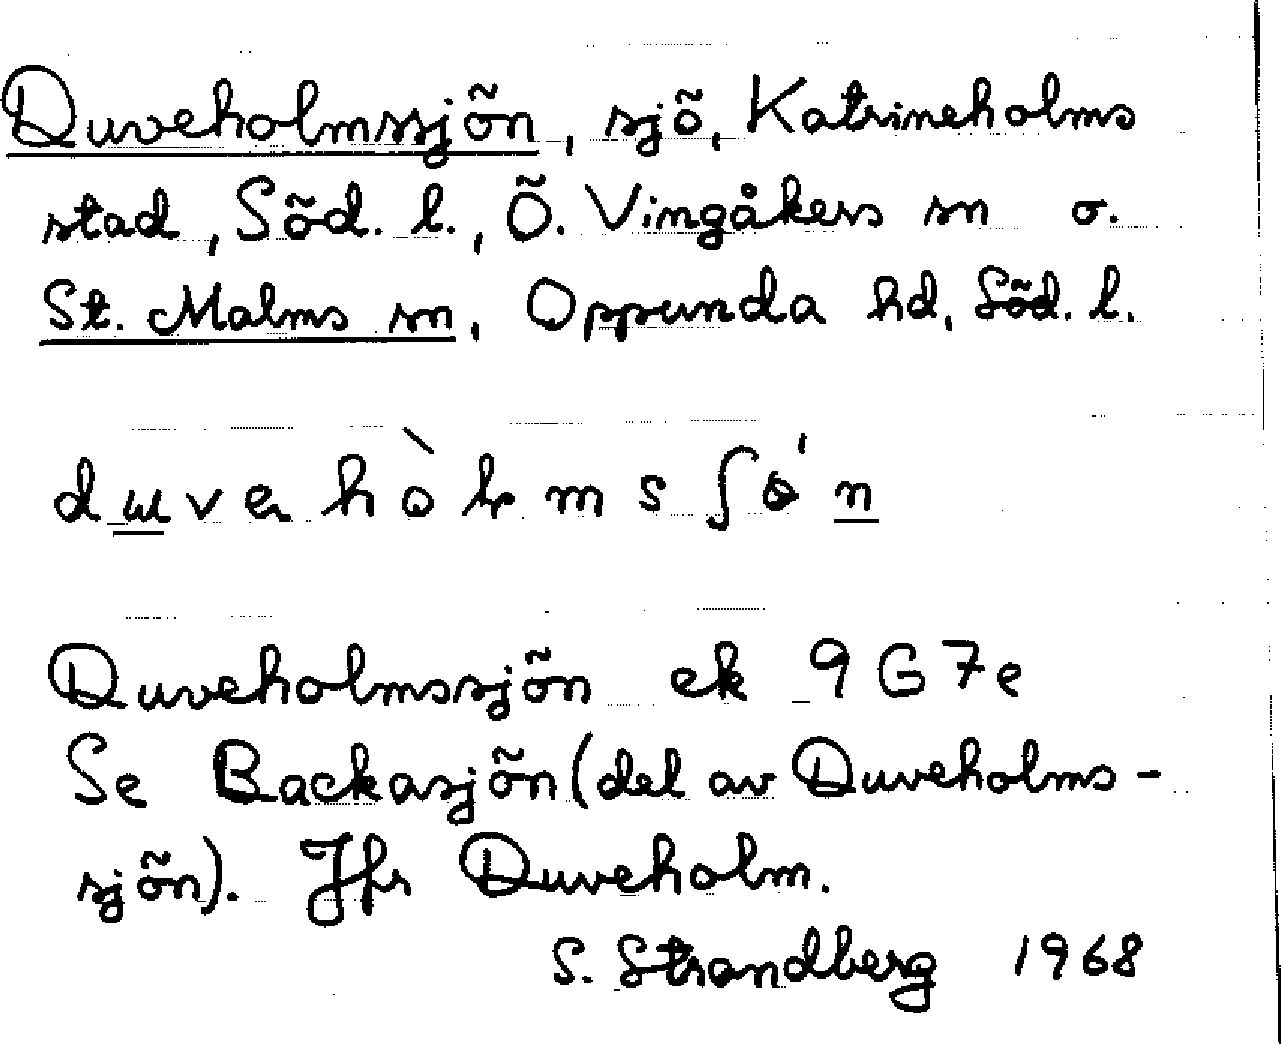 Duveholmssjön, sjö, Katrineholms
stad, Söd. l., Ö. Vingåkers sn o.
St. Malms sn, Oppunda hd, Söd. l.
Duveholmssjön ek 9G7e
Se Backasjön (del av Duveholms-
sjön). Jfr Duveholm.
S. Strandberg 1968